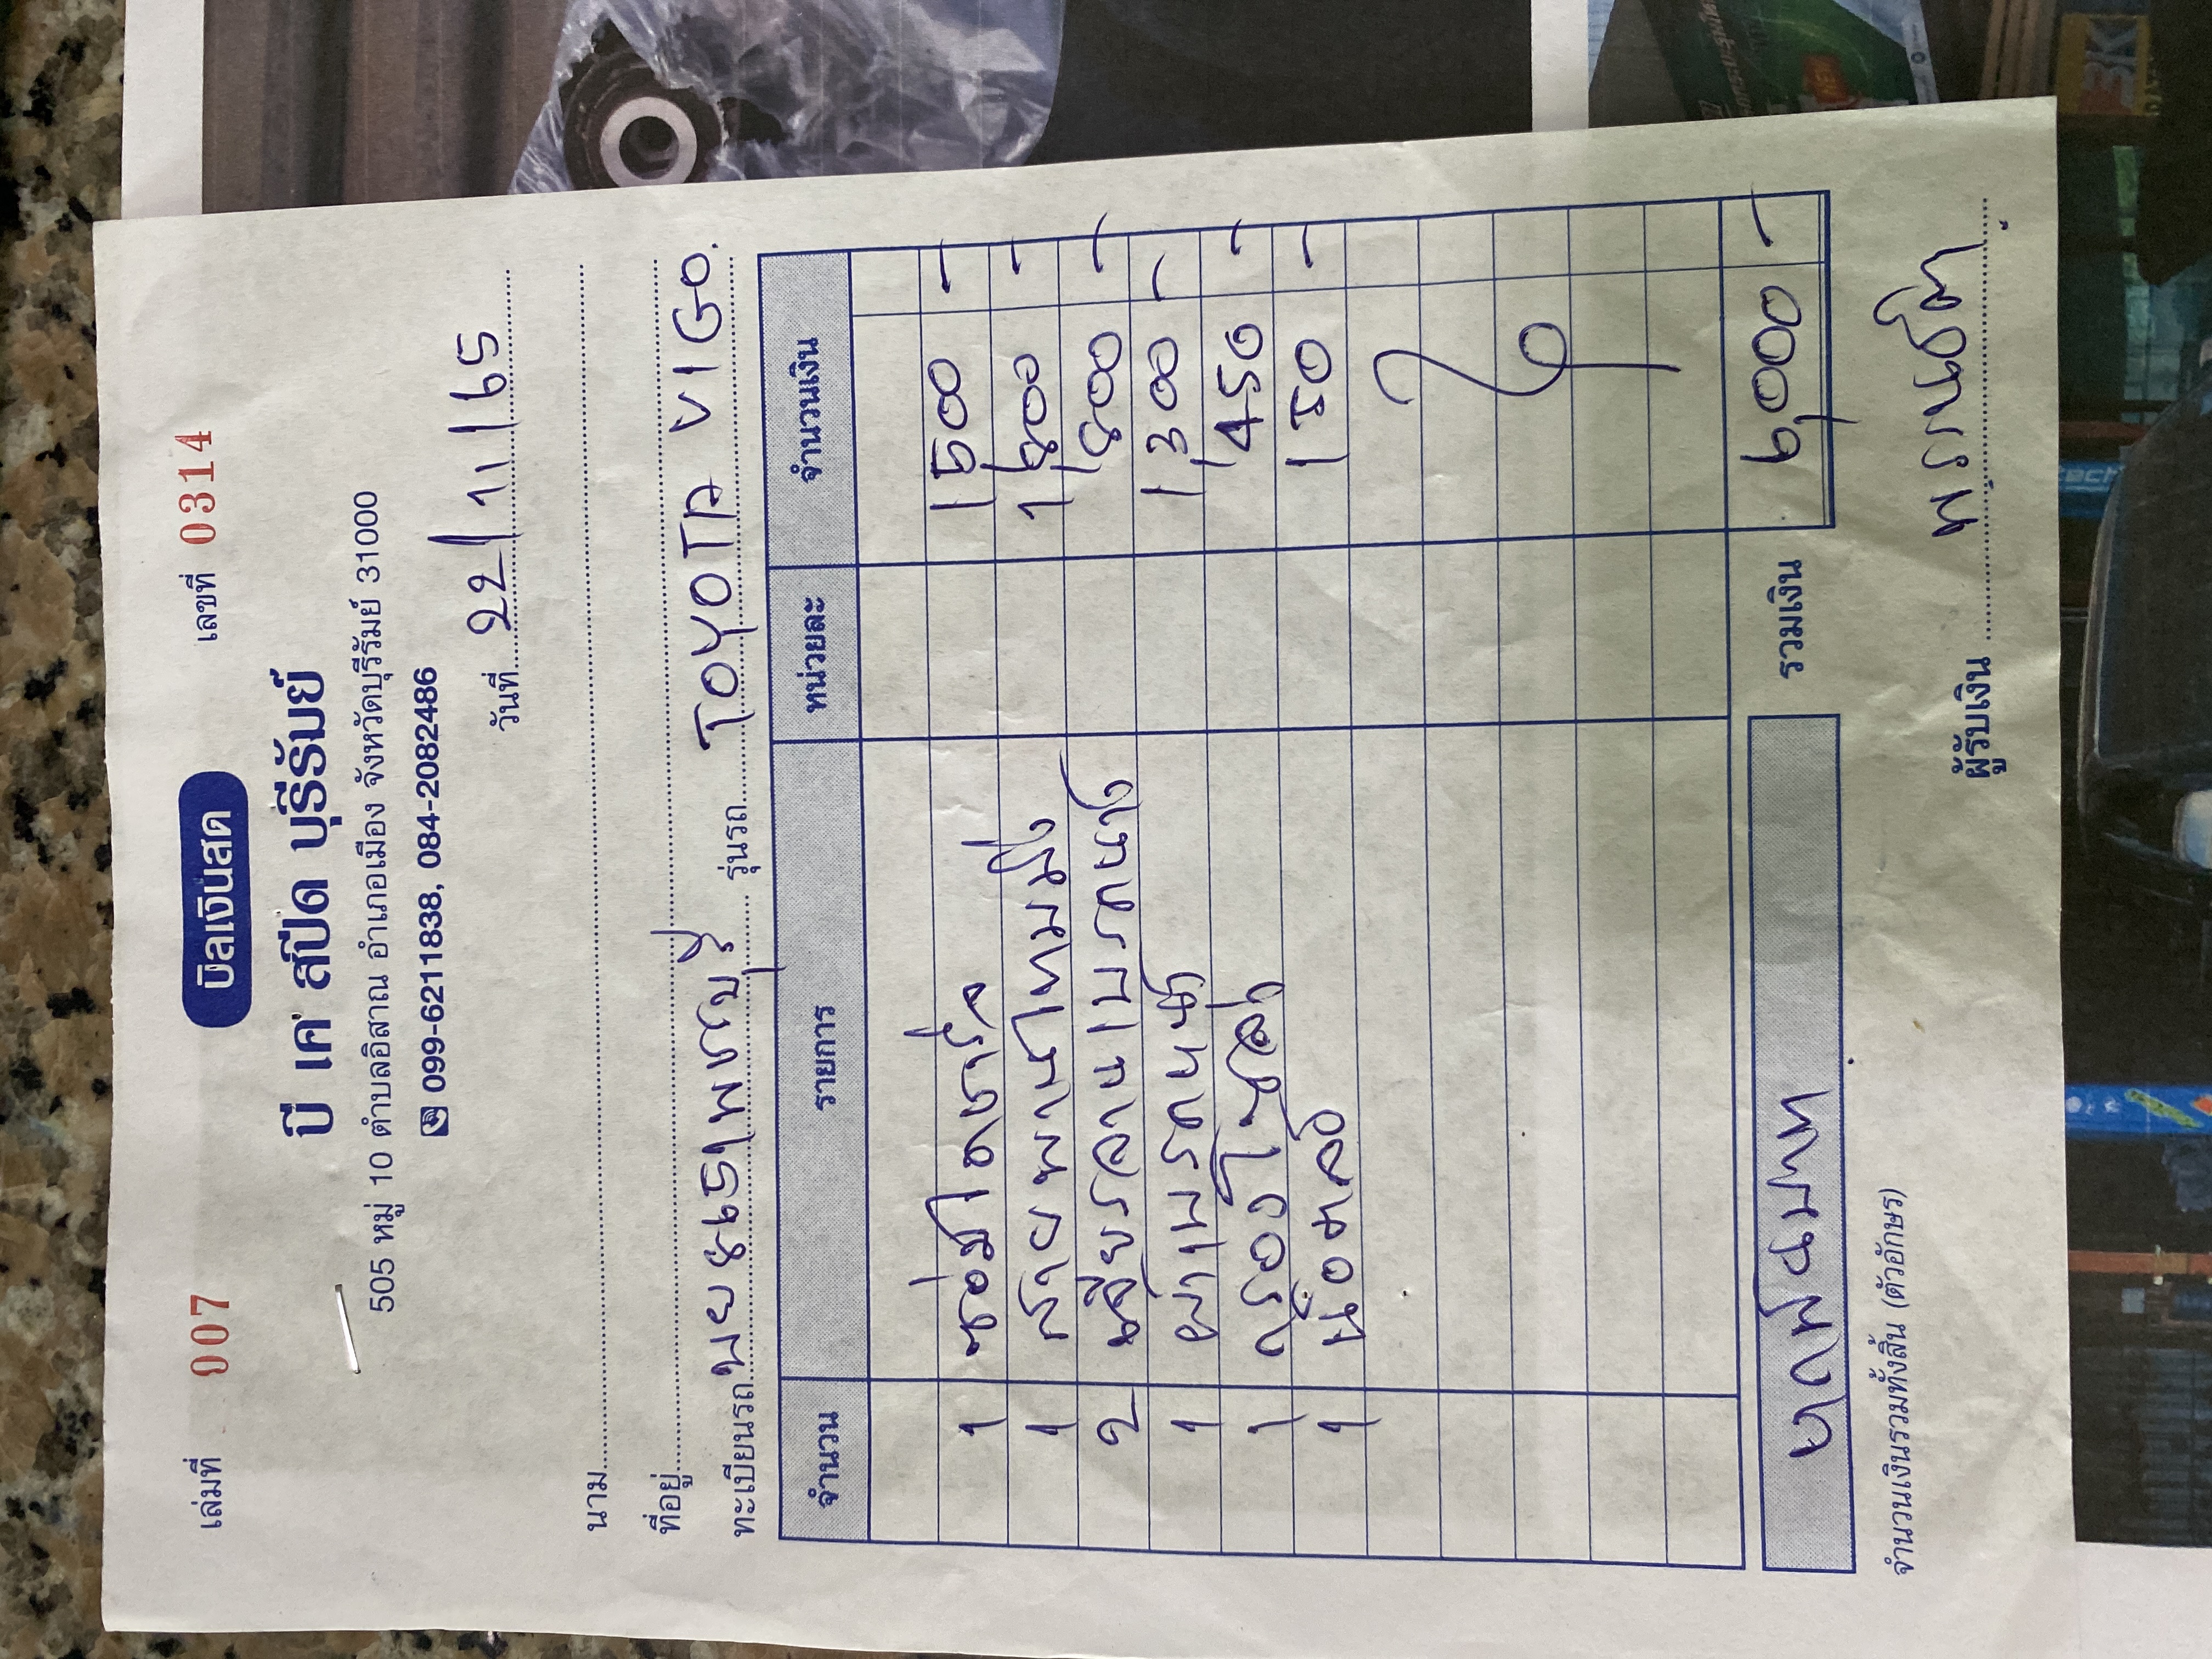 เล่มที่ 007 บิลเงินสด เลขที่ 0314
บี เค สปีด บุรีรัมย์
505 หมู่ 10 ตำบลอิสาณ อำเภอเมือง จังหวัดบุรีรัมย์ 31000
099-6211838, 084-2082486
วันที่ 22/11/65
นาม
ที่อยู่
ทะเบียนรถ เพชรบุรี รุ่นรถ TOYOTA VIGO.
จำนวน รายการ หน่วยละ จำนวนเงิน
1 1500 -
1 สายพานไทม์มิ่ง 1800 -
2 800 -
1 ผ้าเบรคหน้า 1300 -
1 กรองโซล่า 450 -
1 150 -
หกพันบาท รวมเงิน 6,000 -
จำนวนเงินรวมทั้งสิ้น (ตัวอักษร)
ผู้รับเงิน
3K